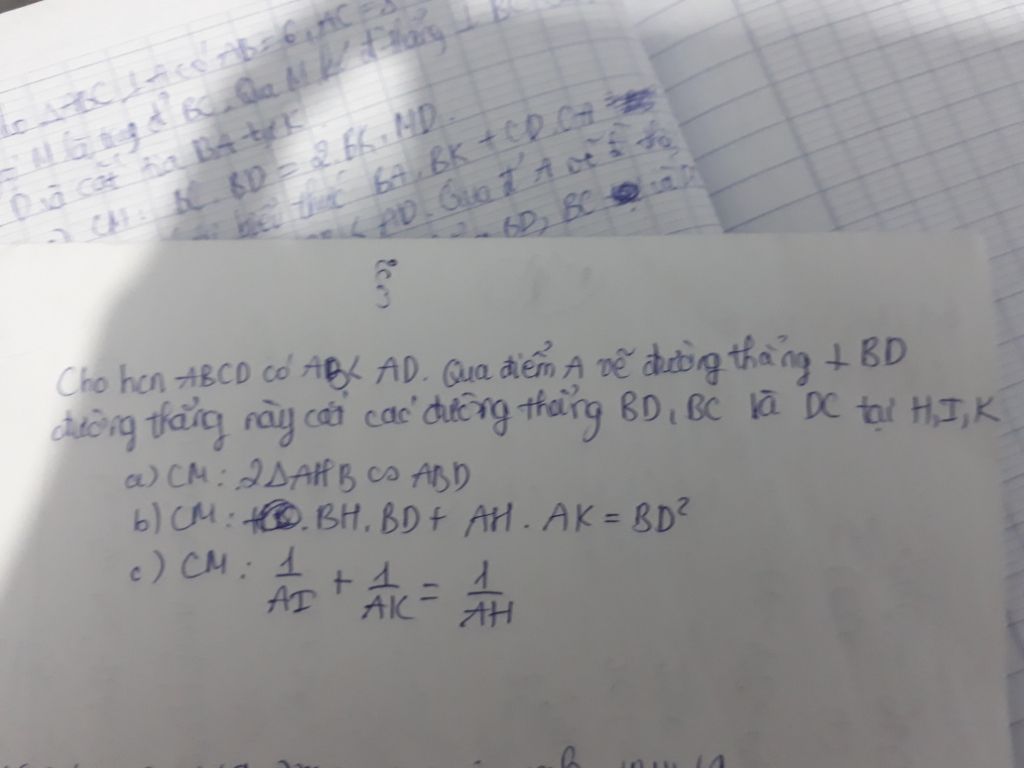 ΔABC ⊥ A có AB = 6, AC = 8
BC. Qua M kẻ đ thẳng ⊥ BC
D và cắt tia BA tại K
CM: BC. BD = 2. BK. MD.
biểu thức BA. BK + CD. CA
AD. Qua đ' A vẽ
BD, BC
Cho hcn ABCD có AB < AD. Qua điểm A vẽ đường thẳng ⊥ BD
đường thẳng này cắt các đường thẳng BD, BC và DC tại H, I, K
a) CM: 2ΔAHB ∽ ABD
b) CM: BH. BD + AH. AK = BD²
c) CM: 1/AI + 1/AK = 1/AH